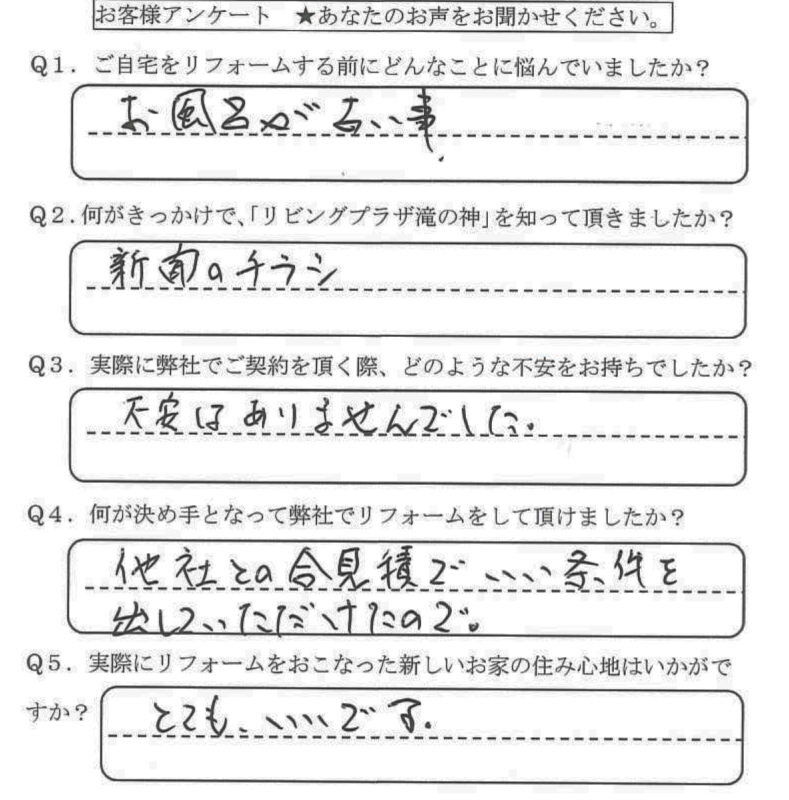 お客様アンケート ★あなたのお声をお聞かせください。
Q1．ご自宅をリフォームする前にどんなことに悩んでいましたか？
お風呂が古い事.
Q2.何がきっかけで、「リビングプラザ滝の神」を知って頂きましたか？
新聞のチラシ
Q3．実際に弊社でご契約を頂く際、どのような不安をお持ちでしたか？
不安はありませんでした。
Q4．何が決め手となって弊社でリフォームをして頂けましたか？
他社との合見積で、いい条件を
出していただけたので。
Q5．実際にリフォームをおこなった新しいお家の住み心地はいかがで
すか？
とても、いいです.